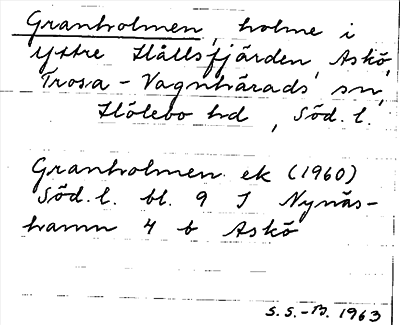 Granholmen, holme i
yttre Hållsfjärden, Askö,
Trosa-Vagnhärads sn,
Hölebo hd, Söd. l.
Granholmen ek (1960)
Söd. l. bl. 9 I Nynäs-
hamn 4 b Askö
S. S.-B. 1963